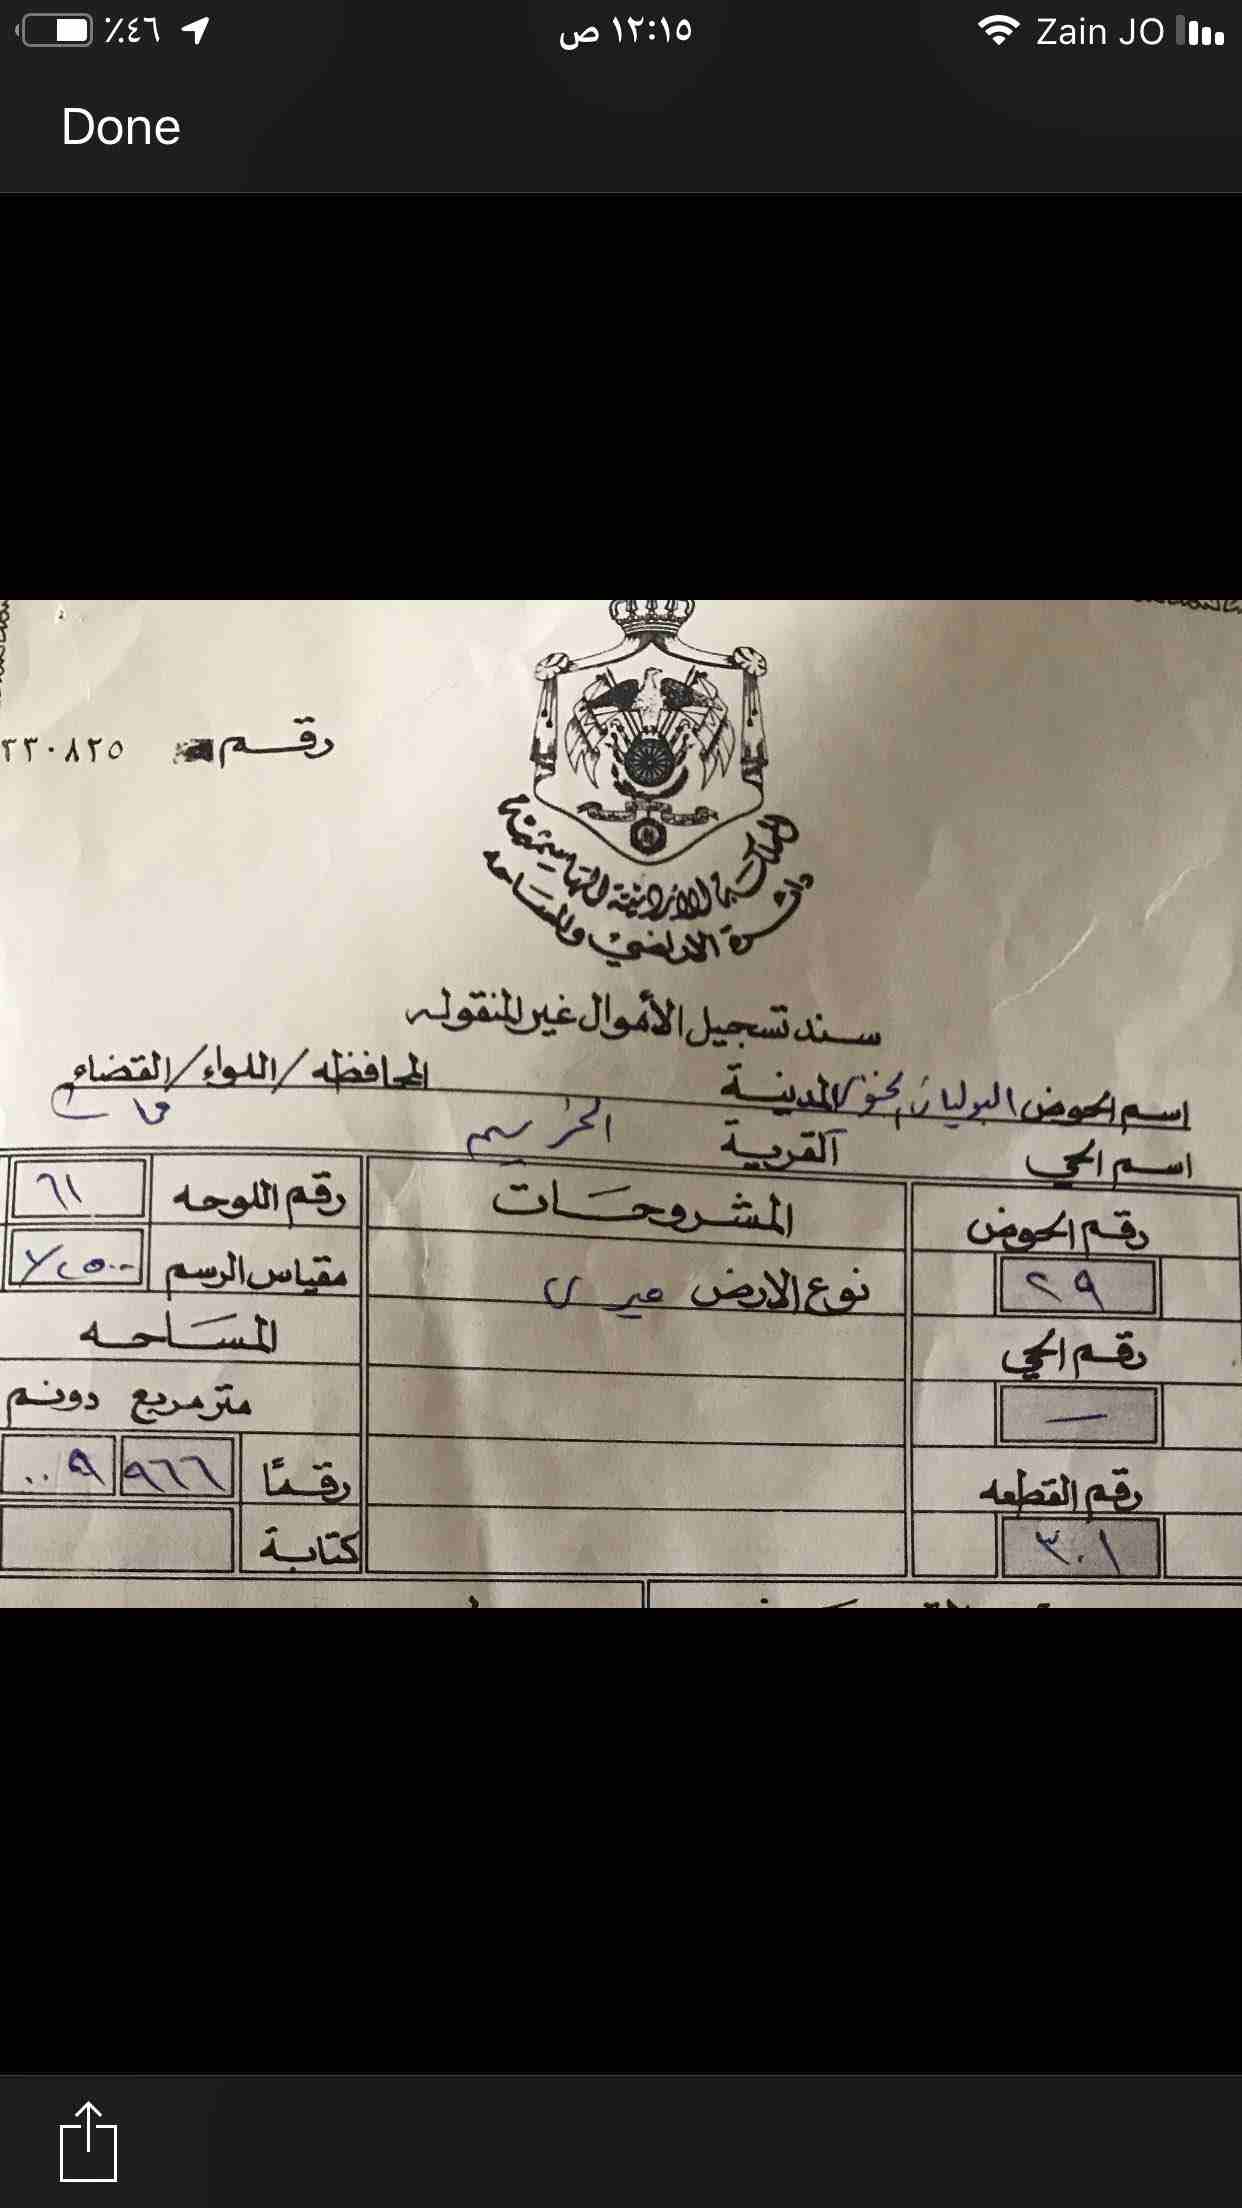 ٪٤٦ ١٢:١٥ ص Zain JO
Done
رقم ٢٣٠٨٢٥
المملكة الأردنية الهاشمية
دائرة الاراضي والمساحه
سند تسجيل الأموال غير المنقوله
اسم الحوض المدينة المحافظه/اللواء/القضاء
اسم الحي القرية
رقم الحوض المشروحات رقم اللوحه ٦١
٢٩ نوع الارض ميري مقياس الرسم
رقم الحي المساحه
— متر مربع دونم
رقم القطعه رقمًا ٩٦٦ ٩..
٣٠١ كتابة